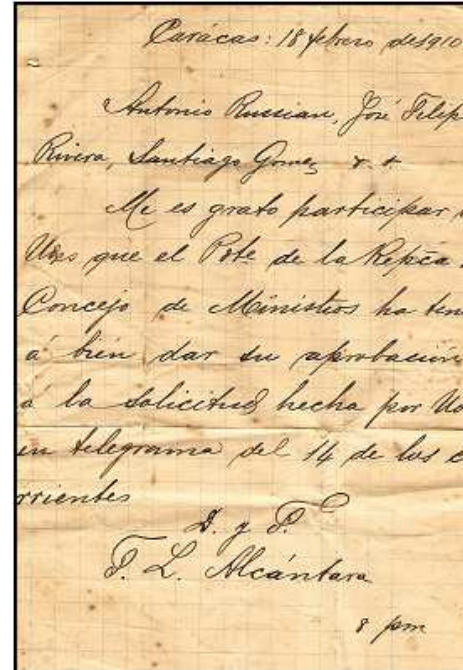 Carácas: 18 febrero de 1910
Antonio Russian, José Felip
Rivera, Santiago Gomez &. &
Me es grato participar
Uds que el Pdte de la Repca
Concejo de Ministros ha ten
á bien dar su aprobación
á la solicitud hecha por Uds
en telegrama del 14 de los c
rrientes
D. y F.
F. L. Alcántara
8 pm